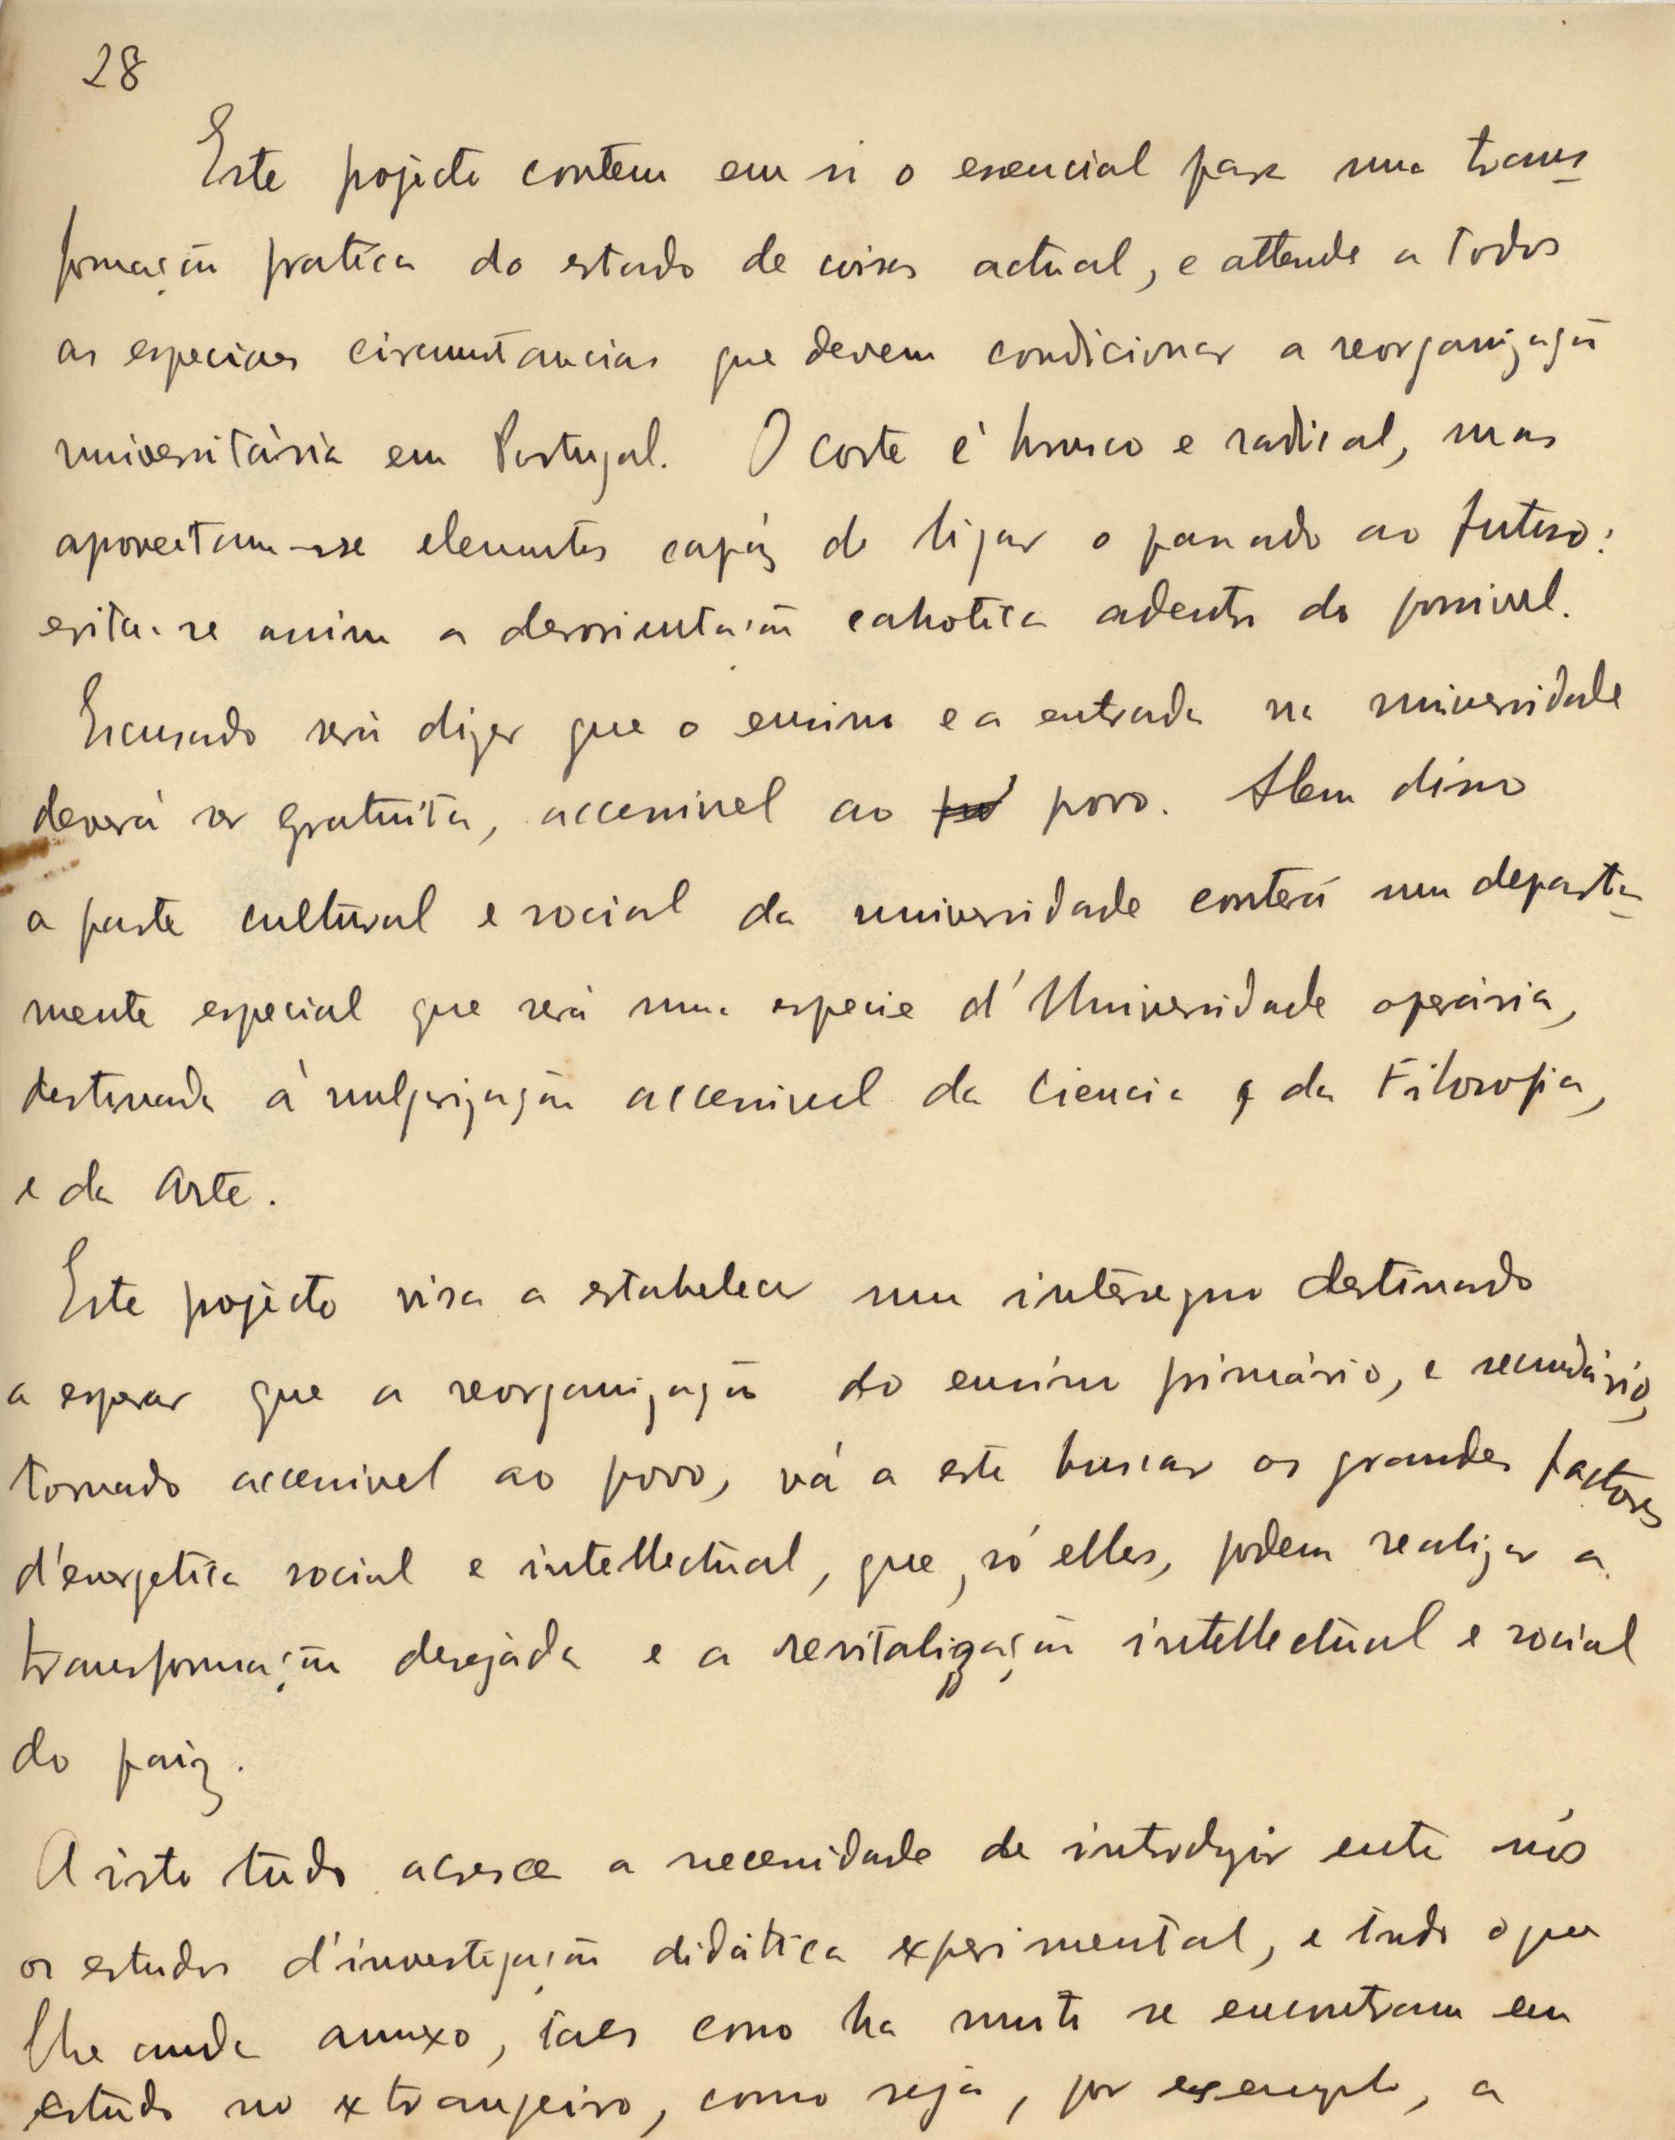 28
Este projecto contem em si o essencial para uma trans
formação pratica do estado de coisas actual, e attende a todas
as especiaes circumstancias que devem condicionar a reorganização
universitária em Portugal. O corte é brusco e radical, mas
aproveitam-se elementos capáz de ligar o passado ao futuro:
evita-se assim a desorientação cahotica adentro do possivel.
Escusado será dizer que o ensino e a entrada na universidade
deverá ser gratuita, accessivel ao povo. Alem disso
a parte cultural e social da universidade conterá um departa
mento especial que será uma especie d'Universidade operária,
destinada à vulgarização accessivel da Ciencia, da Filosofia,
e da Arte.
Este projecto visa a estabelecer um interregno destinado
a esperar que a reorganização do ensino primário, e secundário,
tornado accessivel ao povo, vá a este buscar os grandes factores
d'energetica social e intellectual, que, só elles, podem realizar a
transformação desejada e a revitalização intellectual e social
do paiz.
A isto tudo acresce a necessidade de introdzir entre nós
os estudos d'investigação didática experimental, e tudo o que
lhe anda annexo, taes como ha muito se encontram em
estudo no extrangeiro, como seja, por exemplo, a